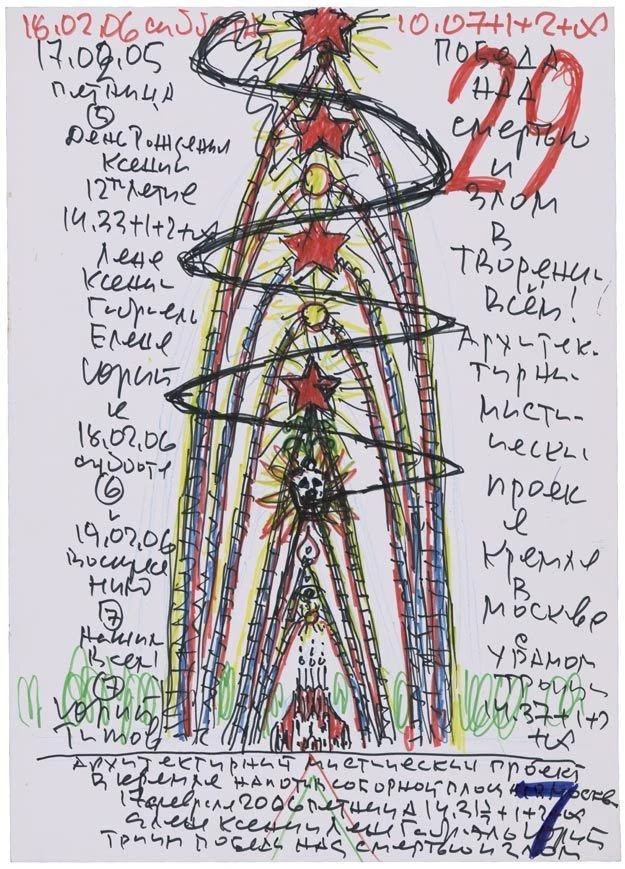 18.02.06 суббота 10.07+1+2+∞
17.02.05
пятница
5
День Рождения
Ксении
12ти летие
14.33+1+2+∞
Лене
Ксении
Габриель
Елене
Юрий
и
18.02.06
суббота
6
и
19.02.06
Воскресе
ние
7
нашим
Всем
Юрий
Титов
29
ПОБЕДА
НАД
смертью
и
Злом
В
творении
Всём!
Архитек-
турни-
мисти-
чески
проек
Кремля
В
Москве
с
Храмом
Троицы
14.37+1+2
+∞
Архитектурний мистический проект
В кремле на Соборной площ Москве
17 февраля 2006 пятница 14.31+1+2+∞
Лене Ксении Лене Габриэль Юрий
Троицы победа над смертью и злом
7